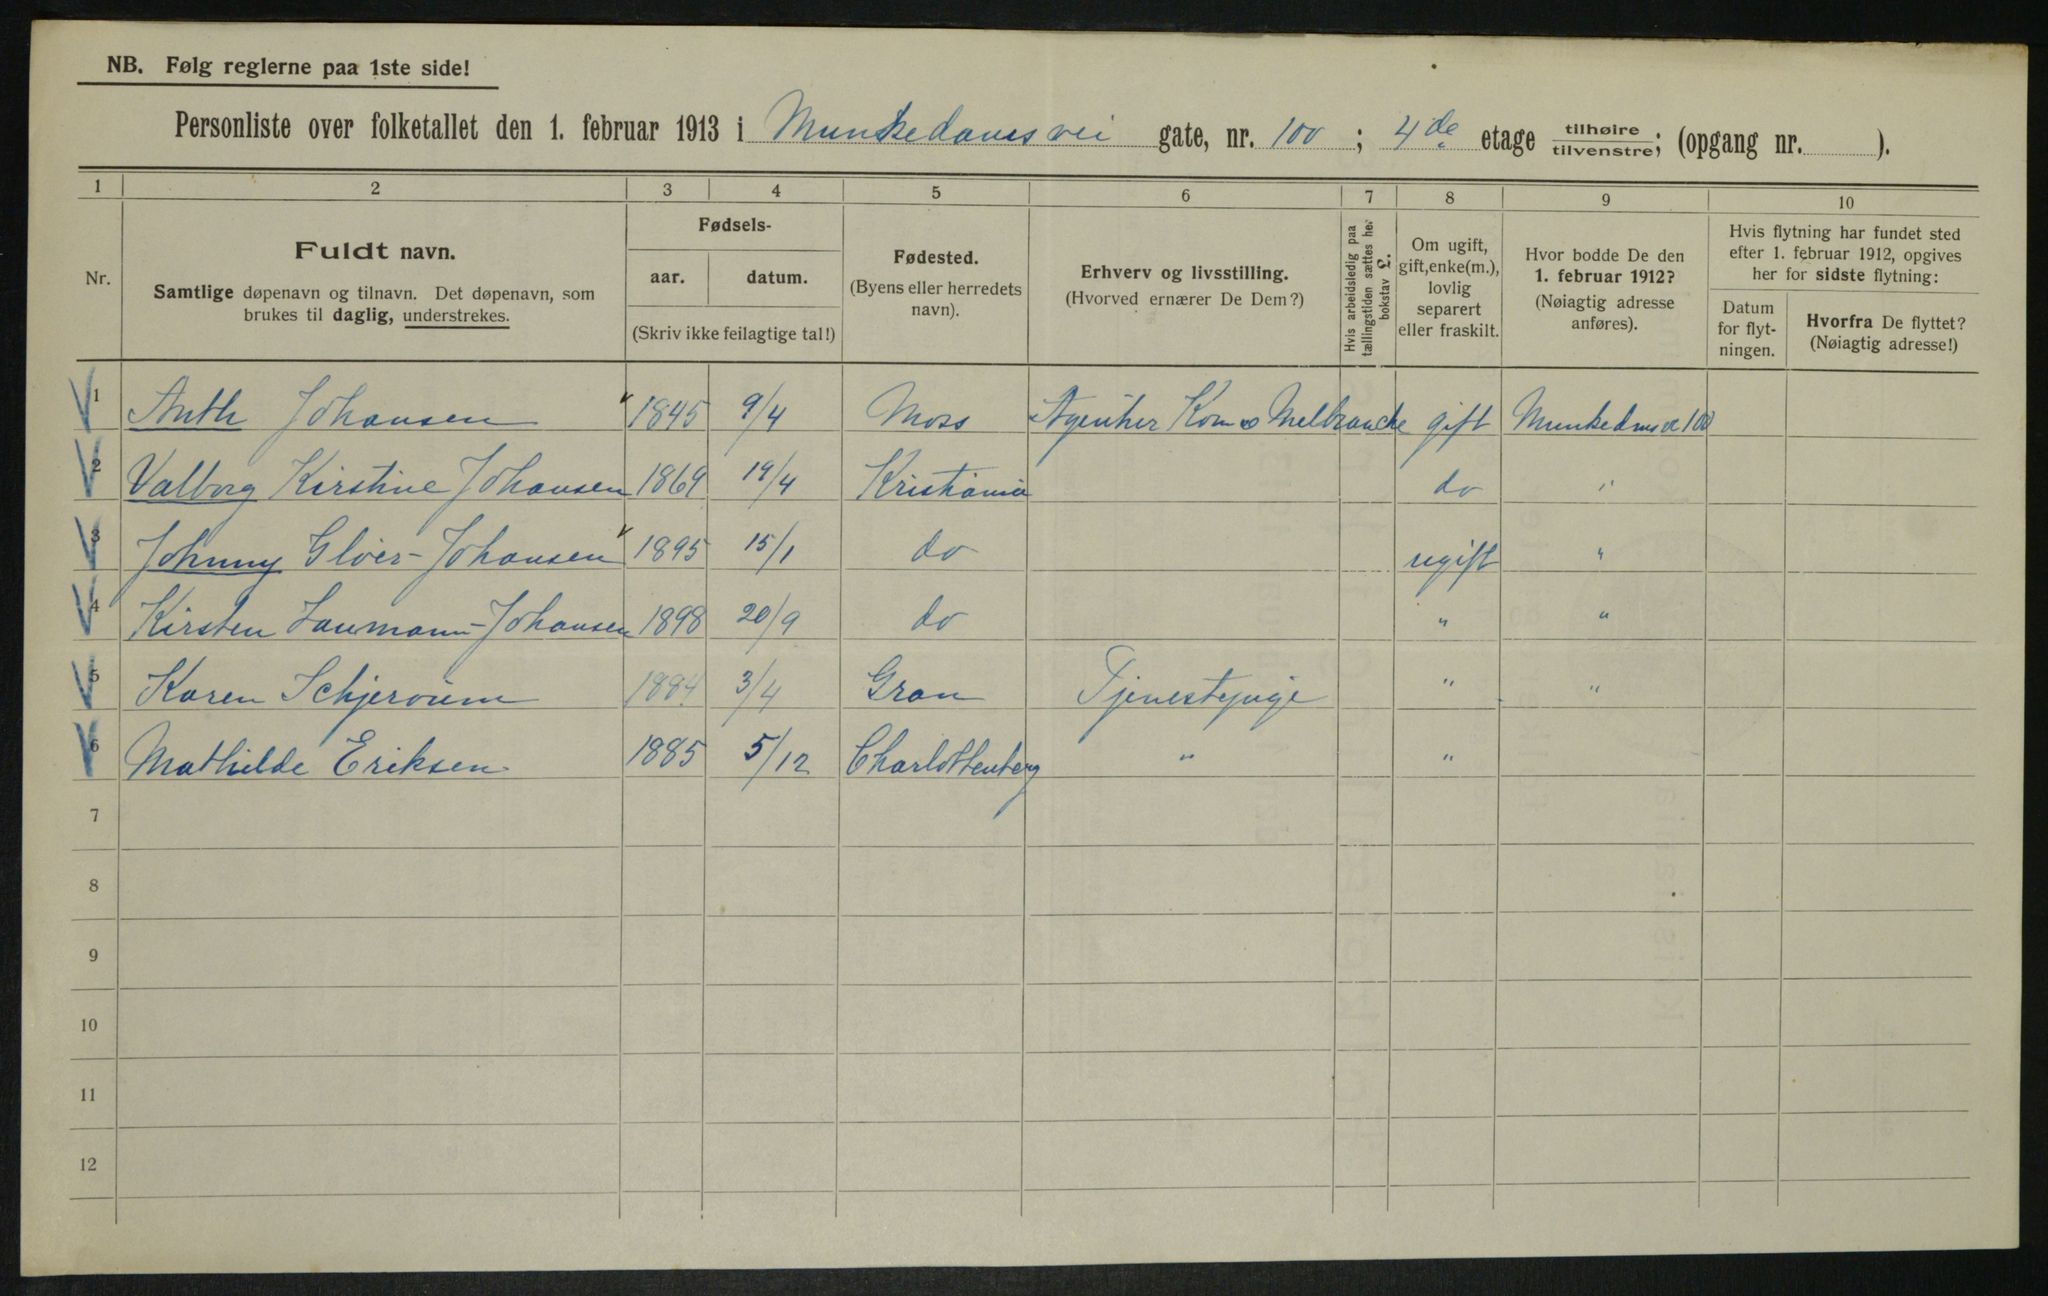 NB. Følg reglerne paa 1ste side!
Personliste over folketallet den 1. februar 1913 i Munkedamsvei gate, nr. 100; 4de etage tilhøire / tilvenstre; (opgang nr. ).
1 2 3 4 5 6 7 8 9 10
Nr.
Fuldt navn.
Samtlige døpenavn og tilnavn. Det døpenavn, som
brukes til daglig, understrekes.
Fødsels-
aar. datum.
(Skriv ikke feilagtige tal!)
Fødested.
(Byens eller herredets
navn).
Erhverv og livsstilling.
(Hvorved ernærer De Dem?)
Hvis arbeidsledig paa
tællingstiden sættes her
bokstav L.
Om ugift,
gift, enke(m.),
lovlig
separert
eller fraskilt.
Hvor bodde De den
1. februar 1912?
(Nøiagtig adresse
anføres).
Hvis flytning har fundet sted
efter 1. februar 1912, opgives
her for sidste flytning:
Datum
for flyt-
ningen.
Hvorfra De flyttet?
(Nøiagtig adresse!)
1 Anth Johansen 1845 9/4 Moss Agentur Korn o Melbranche gift Munkedmsv 100
2 Valborg Kirstine Johansen 1869 19/4 Kristiania do "
3 Johnny Gløer-Johansen 1895 15/1 do ugift "
4 Kirsten Laumann-Johansen 1898 20/9 do " "
5 Karen Schjervum 1884 3/4 Gran Tjenestepige " "
6 Mathilde Eriksen 1885 5/12 Charlottenberg " "
7
8
9
10
11
12